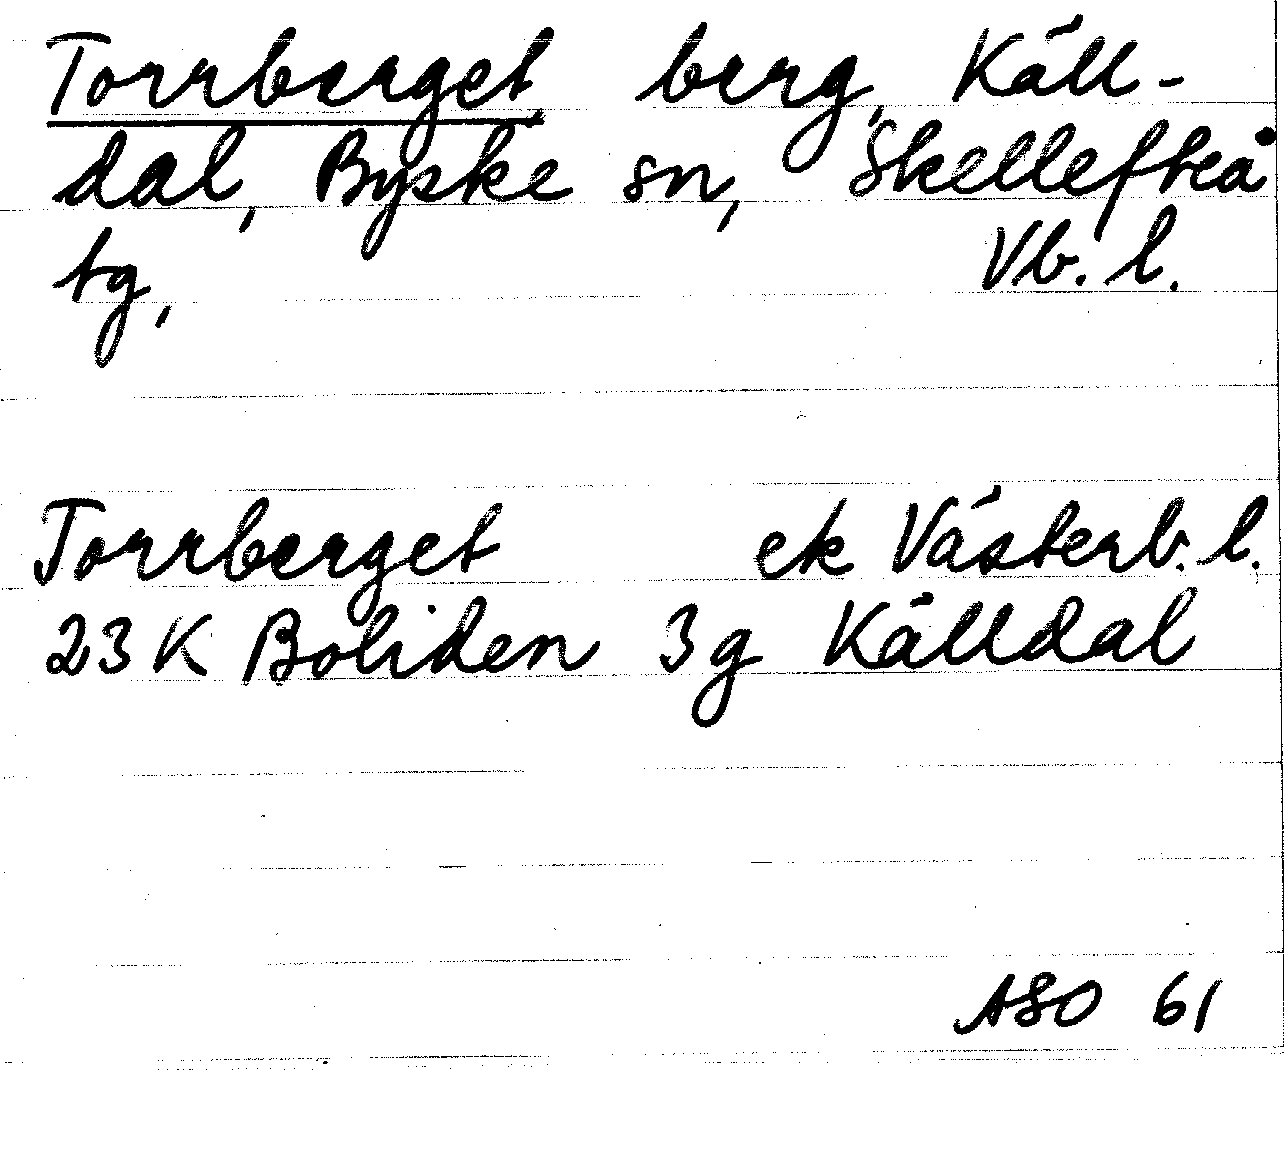 Torrberget, berg, Käll-
dal, Byske sn, Skellefteå
tg, Vb. l.
Torrberget ek Västerb. l.
23 K Boliden 3g Källdal
ASO 61